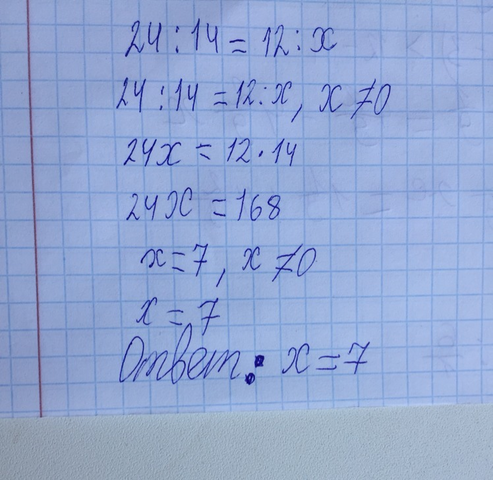 24 : 14 = 12 : x
24 : 14 = 12 : x, x ≠ 0
24x = 12 · 14
24x = 168
x = 7, x ≠ 0
x = 7
Ответ: x = 7